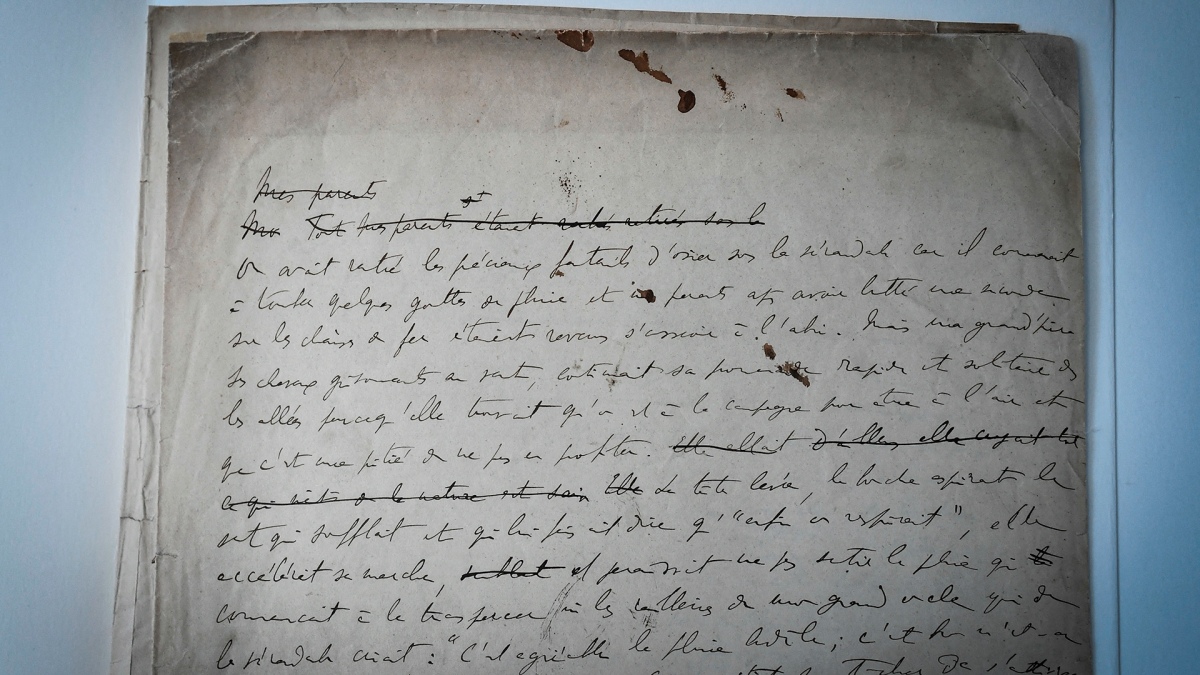 Mes parents
Mo Tout Mes parents étaient rentrés sur le
On avait rentré les précieux fauteuils d'osier sous la vérandah car il commençait
à tomber quelques gouttes de pluie et mes parents après avoir lutté une seconde
sur les chaises de fer étaient revenus s'asseoir à l'abri. Mais ma grand'mère
ses cheveux grisonnants au vent, continuait sa promenade rapide et solitaire dans
les allées parcequ'elle trouvait qu'on est à la campagne pour être à l'air et
que c'est une pitié de ne pas en profiter. Elle allait D'ailleurs elle croyait
ce qui de la nature est sain Elle La tête levée, la bouche aspirant le
vent qui soufflait et qui lui faisait dire qu'"enfin on respirait", elle
accélérait sa marche, semblait et paraissait ne pas sentir la pluie qui
commençait à la transpercer ni les railleries de mon grand oncle qui de
la vérandah criait : "C'est agréable la pluie hein; c'est bon n'est-ce